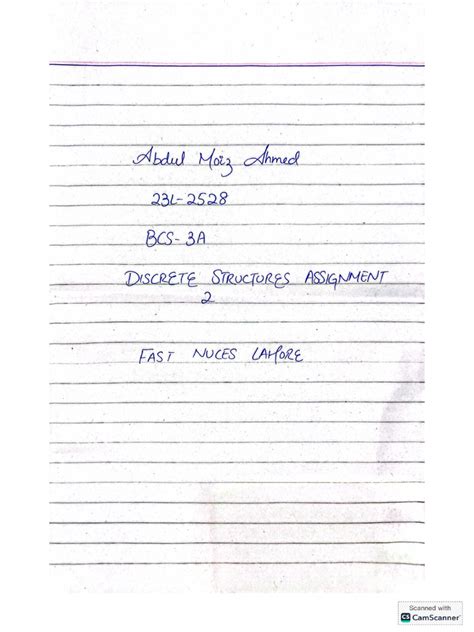 Abdul Moiz Ahmed
23L-2528
BCS-3A
DISCRETE STRUCTURES ASSIGNMENT
2
FAST NUCES LAHORE
Scanned with
CS CamScanner